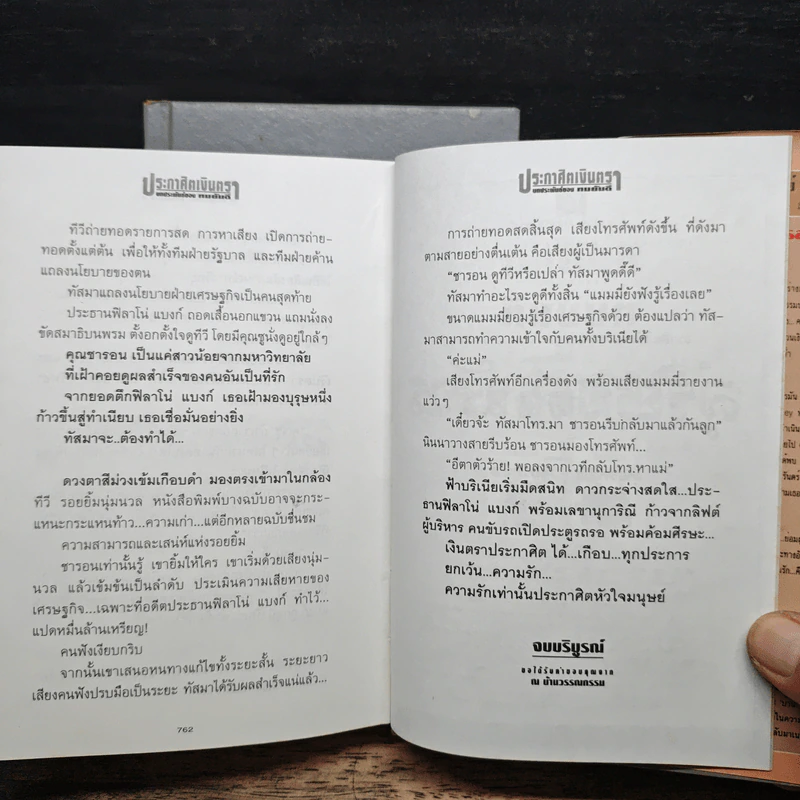 ประกาศิตเงินตรา
บทประพันธ์ของ ทมยันตี
ทีวีถ่ายทอดรายการสด การหาเสียง เปิดการถ่าย-
ทอดตั้งแต่ต้น เพื่อให้ทั้งทีมฝ่ายรัฐบาล และทีมฝ่ายค้าน
แถลงนโยบายของตน
ทัสมาแถลงนโยบายฝ่ายเศรษฐกิจเป็นคนสุดท้าย
ประธานฟิลาโน่ แบงก์ ถอดเสื้อนอกแขวน แถมนั่งลง
ขัดสมาธิบนพรม ตั้งอกตั้งใจดูทีวี โดยมีคุณชูนั่งดูอยู่ใกล้ๆ
คุณชารอน เป็นแค่สาวน้อยจากมหาวิทยาลัย
ที่เฝ้าคอยดูผลสำเร็จของคนอันเป็นที่รัก
จากยอดตึกฟิลาโน่ แบงก์ เธอเฝ้ามองบุรุษหนึ่ง
ก้าวขึ้นสู่ทำเนียบ เธอเชื่อมั่นอย่างยิ่ง
ทัสมาจะ..ต้องทำได้...
ดวงตาสีม่วงเข้มเกือบดำ มองตรงเข้ามาในกล้อง
ทีวี รอยยิ้มนุ่มนวล หนังสือพิมพ์บางฉบับอาจจะกระ-
แหนะกระแหนท้าว...ความเก่า...แต่อีกหลายฉบับชื่นชม
ความสามารถและเสน่ห์แห่งรอยยิ้ม
ชารอนเท่านั้นรู้ เขายิ้มให้ใคร เขาเริ่มด้วยเสียงนุ่ม-
นวล แล้วเข้มข้นเป็นลำดับ ประเมินความเสียหายของ
เศรษฐกิจ...เฉพาะที่อดีตประธานฟิลาโน่ แบงก์ ทำไว้...
แปดหมื่นล้านเหรียญ!
คนฟังเงียบกริบ
จากนั้นเขาเสนอหนทางแก้ไขทั้งระยะสั้น ระยะยาว
เสียงคนฟังปรบมือเป็นระยะ ทัสมาได้รับผลสำเร็จแน่แล้ว...
762
ประกาศิตเงินตรา
บทประพันธ์ของ ทมยันตี
การถ่ายทอดสดสิ้นสุด เสียงโทรศัพท์ดังขึ้น ที่ดังมา
ตามสายอย่างตื่นเต้น คือเสียงผู้เป็นมารดา
“ชารอน ดูทีวีหรือเปล่า ทัสมาพูดดี๊ดี”
ทัสมาทำอะไรจะดูดีทั้งสิ้น “แมมมี่ยังฟังรู้เรื่องเลย”
ขนาดแมมมี่ยอมรู้เรื่องเศรษฐกิจด้วย ต้องแปลว่า ทัส-
มาสามารถทำความเข้าใจกับคนทั้งบริเนียได้
“ค่ะแม่”
เสียงโทรศัพท์อีกเครื่องดัง พร้อมเสียงแมมมี่รายงาน
แว่วๆ
“เดี๋ยวจ้ะ ทัสมาโทร.มา ชารอนรีบกลับมาแล้วกันลูก”
นินนาวางสายรีบร้อน ชารอนมองโทรศัพท์...
“อีตาตัวร้าย! พอลงจากเวทีกลับโทร.หาแม่”
ฟ้าบริเนียเริ่มมืดสนิท ดาวกระจ่างสดใส...ประ-
ธานฟิลาโน่ แบงก์ พร้อมเลขานุการิณี ก้าวจากลิฟต์
ผู้บริหาร คนขับรถเปิดประตูรถรอ พร้อมค้อมศีรษะ...
เงินตราประกาศิต ได้...เกือบ...ทุกประการ
ยกเว้น...ความรัก...
ความรักเท่านั้นประกาศิตหัวใจมนุษย์
จบบริบูรณ์
ขอได้รับคำขอบคุณจาก
ณ บ้านวรรณกรรม